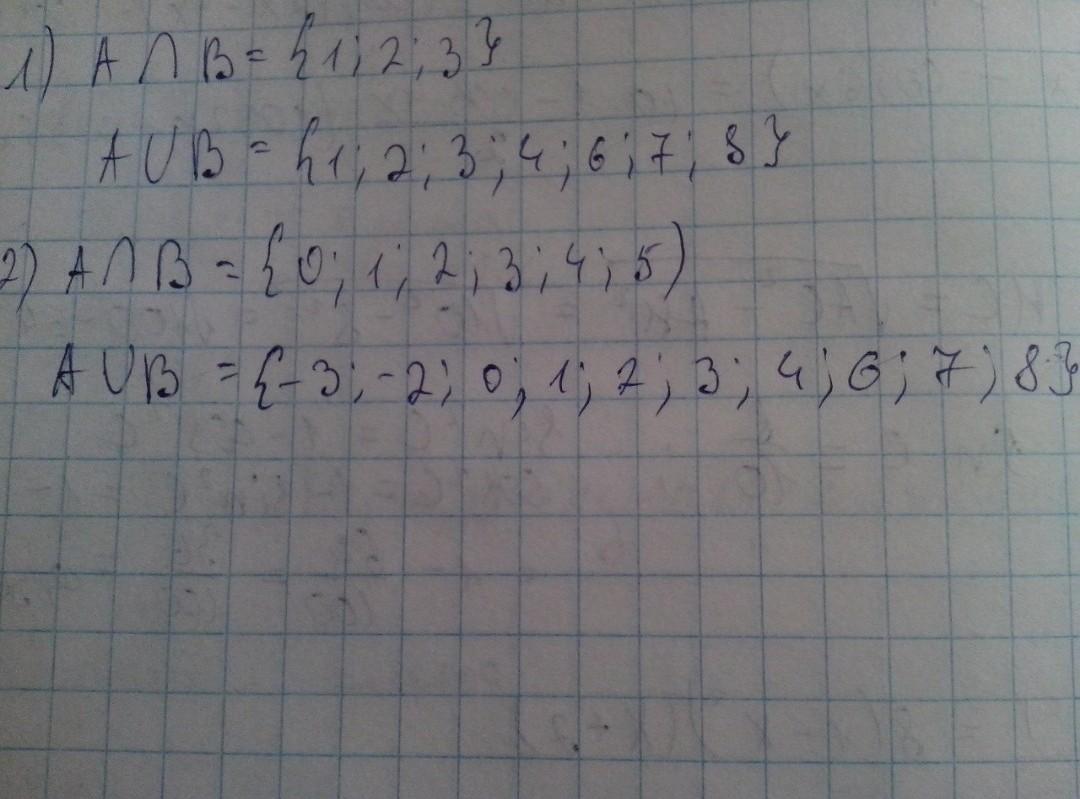 1) A ∩ B = {1; 2; 3}
A ∪ B = {1; 2; 3; 4; 6; 7; 8}
2) A ∩ B = {0; 1; 2; 3; 4; 5)
A ∪ B = {-3; -2; 0; 1; 2; 3; 4; 6; 7; 8}